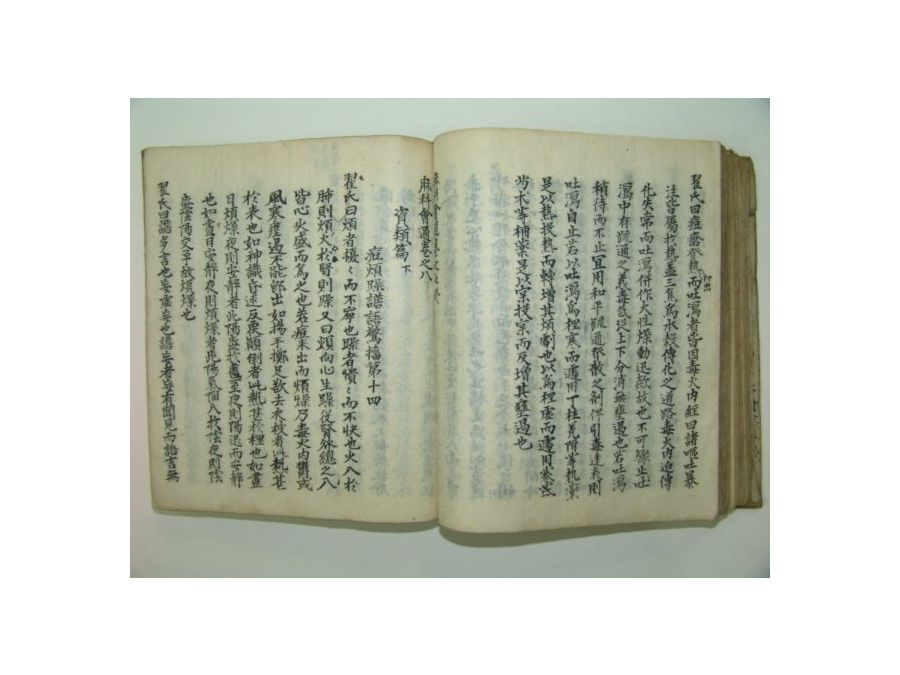 翟氏曰痘瘡發熱初出而吐瀉者皆因毒火內經曰諸嘔吐暴
注皆屬於熱蓋三焦爲水穀傳化之道路毒火內迫傳
化失常而吐瀉併作火性燥動迅欻故也不可驟止吐
瀉中有疏通之義毒氣從上下分消無壅遏也若吐瀉
稍待而不止宜用和平疏道發散之劑俾引毒達表則
吐瀉自止若以吐瀉爲裡寒而遽用丁桂羌附等熱藥
是以熱投熱而轉增其煩劇也以爲裡虛而遽用參芪
朮木等補藥是以實投實而反增其壅遏也
麻科會通卷之八
資類篇 下
痘煩躁譫語驚搐第十四
翟氏曰煩者擾〻而不寧也躁者憒〻而不快也火入於
肺則煩火於腎則躁又曰煩向心生躁從腎發總之八
皆心火盛而爲之也若痘未出而煩燥乃毒火內鬱或
風寒壅遏不能卽出如揚手擲足欲去衣被者此熱甚
於表也如神識昏迷反覆顚倒者此熱甚於裡也如晝
日煩燥夜則安靜者此陽盛於至夜則陽退而安靜
也如晝日安靜夜則煩燥者此陽氣陷入於陰夜則陰
盛陰陽交爭故煩燥也
翟氏曰譫多言也妄虛妄也譫妄者妄有聞見而語言無